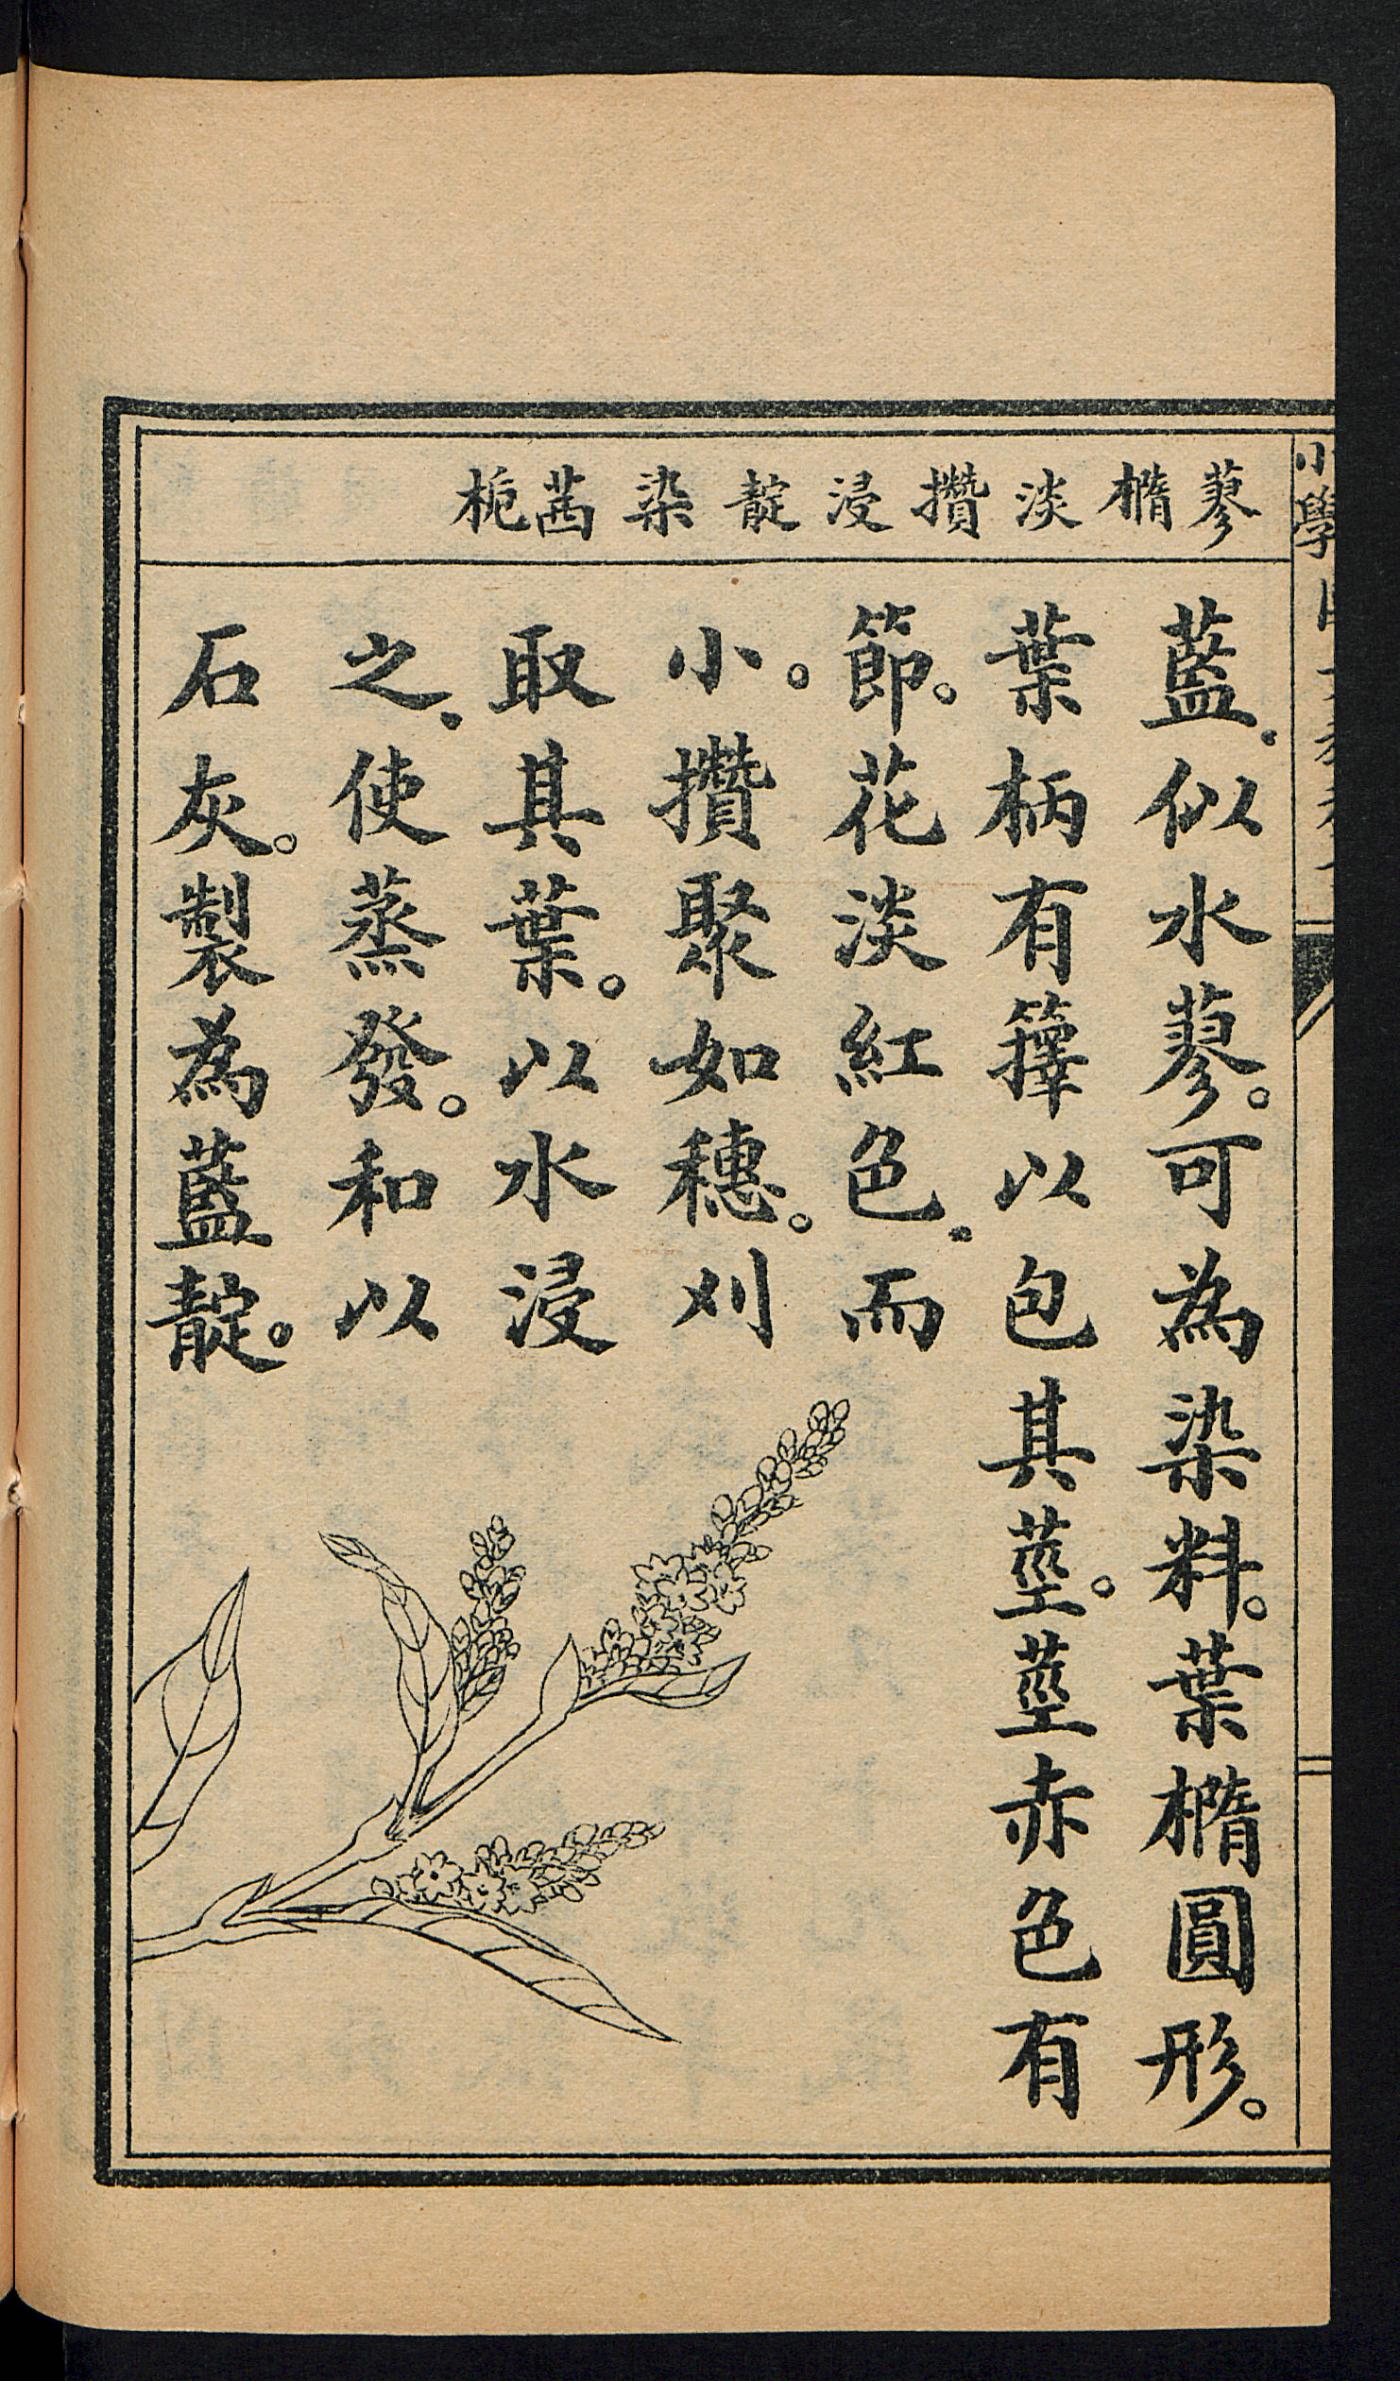 小學
蓼 橢 淡 攢 浸 靛 染 茜 梔
藍、似水蓼。可為染料。葉橢圓形。
葉柄有籜以包其莖。莖赤色有
節。花淡紅色、而
小。攢聚如穗。刈
取其葉。以水浸
之、使蒸發。和以
石灰。製為藍靛。